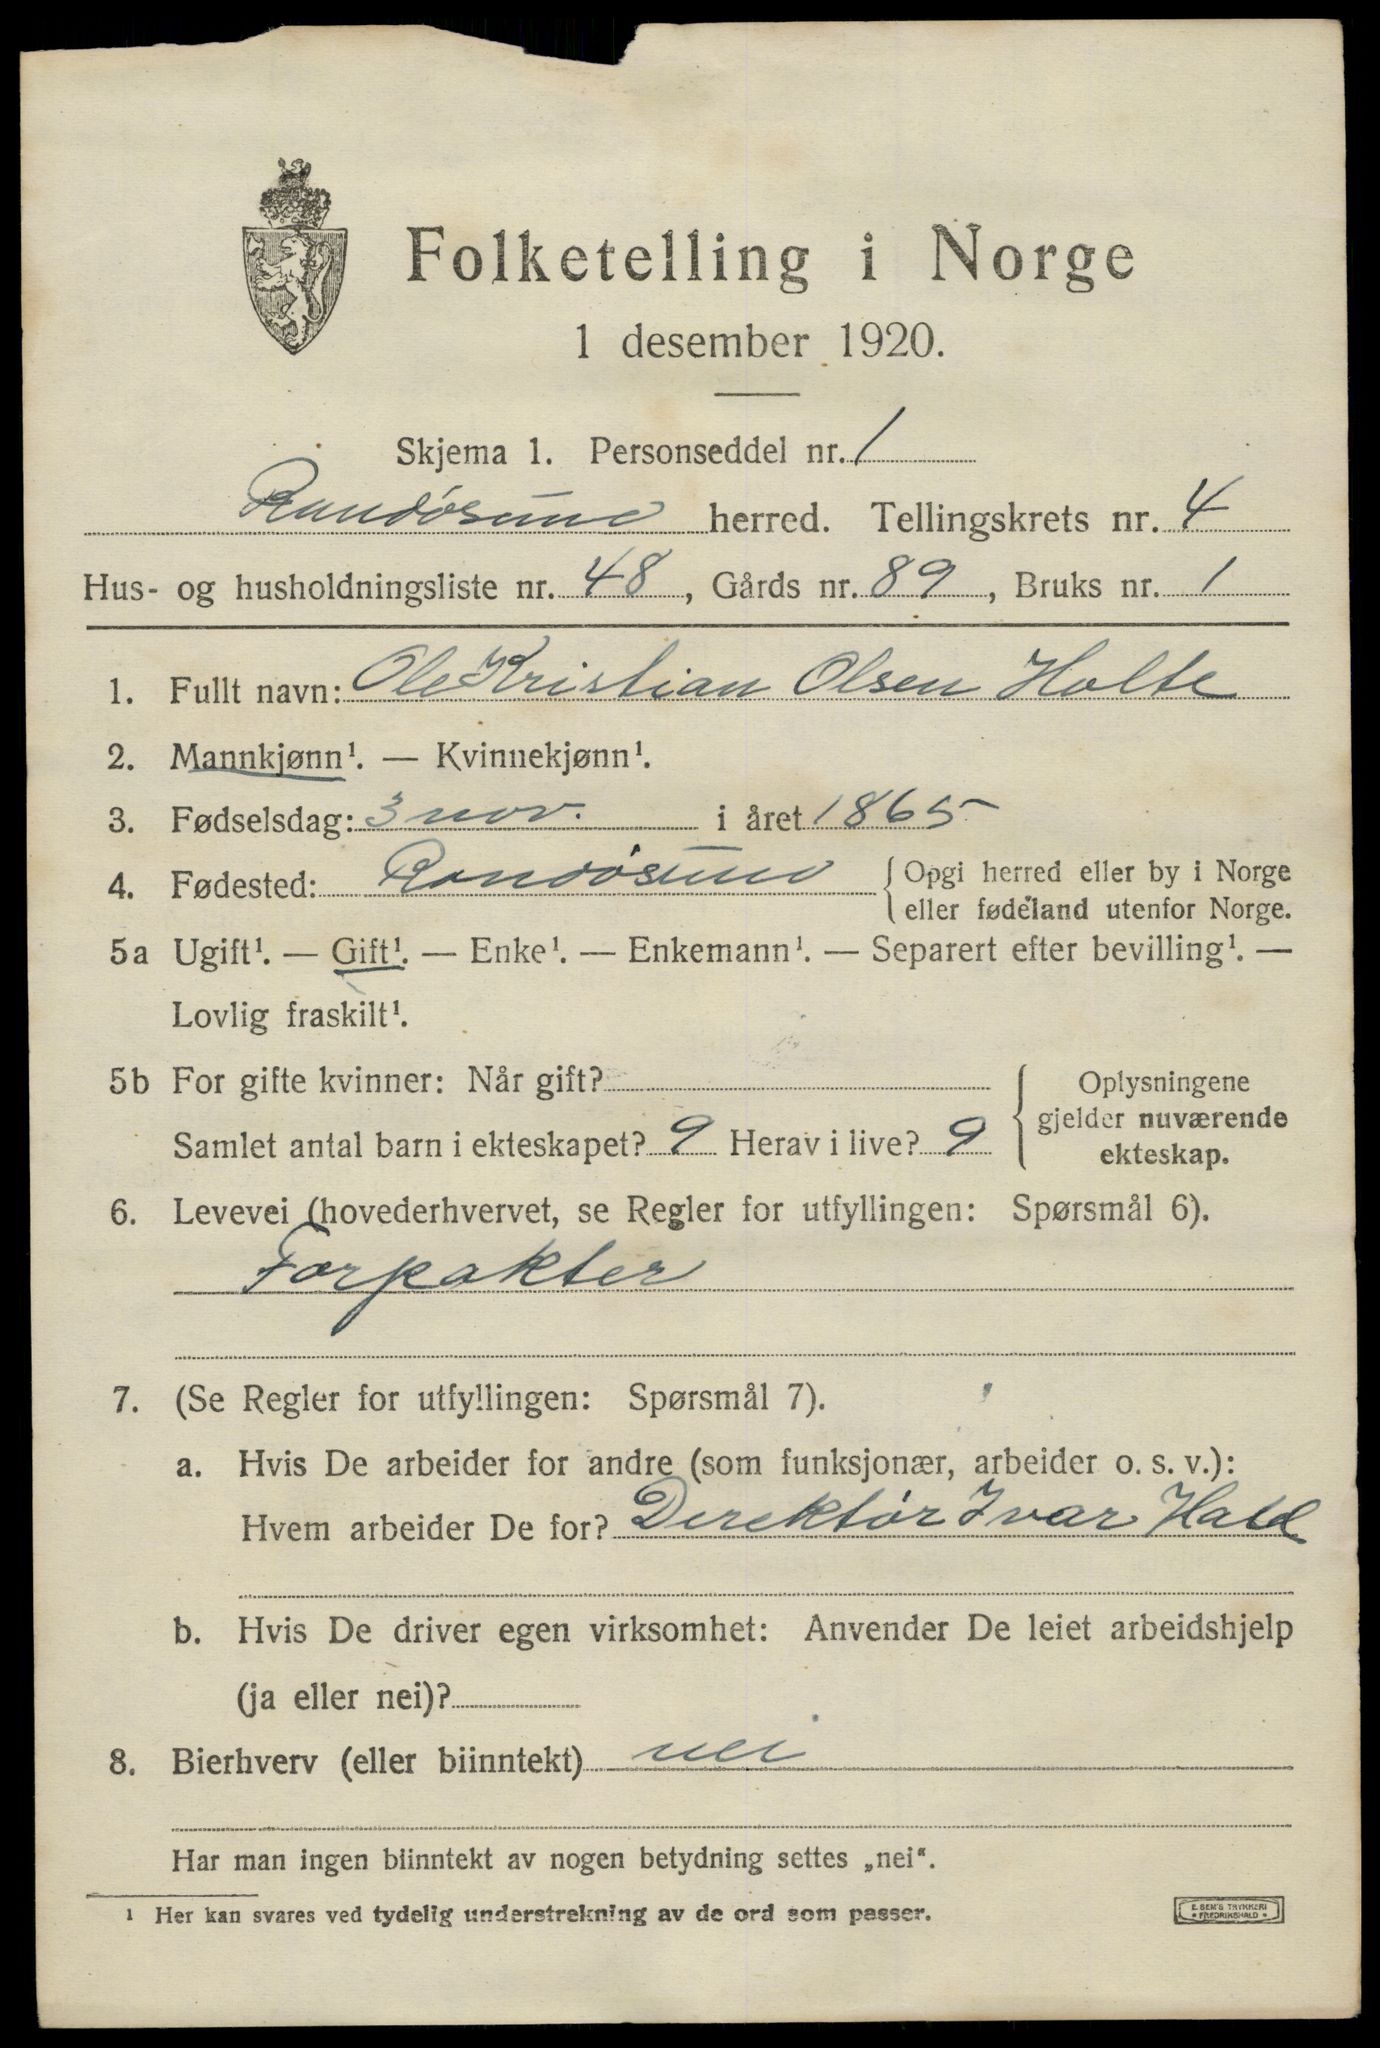 Folketelling i Norge
1 desember 1920.
Skjema 1. Personseddel nr. 1
Randøsund herred. Tellingskrets nr. 4
Hus- og husholdningsliste nr. 48, Gårds nr. 89, Bruks nr. 1
1. Fullt navn: Ole Kristian Olsen Holte
2. Mannkjønn¹. — Kvinnekjønn¹.
3. Fødselsdag: 3 nov. i året 1865
4. Fødested: Randøsund { Opgi herred eller by i Norge
eller fødeland utenfor Norge.
5a Ugift¹. — Gift¹. — Enke¹. — Enkemann¹. — Separert efter bevilling¹. —
Lovlig fraskilt¹.
5b For gifte kvinner: Når gift?
Samlet antal barn i ekteskapet? 9 Herav i live? 9
Oplysningene
gjelder nuværende
ekteskap.
6. Levevei (hovederhvervet, se Regler for utfyllingen: Spørsmål 6).
Forpakter
7. (Se Regler for utfyllingen: Spørsmål 7).
a. Hvis De arbeider for andre (som funksjonær, arbeider o. s. v.):
Hvem arbeider De for? Direktør Ivar Hald
b. Hvis De driver egen virksomhet: Anvender De leiet arbeidshjelp
(ja eller nei)?
8. Bierhverv (eller biinntekt) nei
Har man ingen biinntekt av nogen betydning settes „nei“.
¹ Her kan svares ved tydelig understrekning av de ord som passer.
E. SEM'S TRYKKERI
* FREDRIKSHALD *